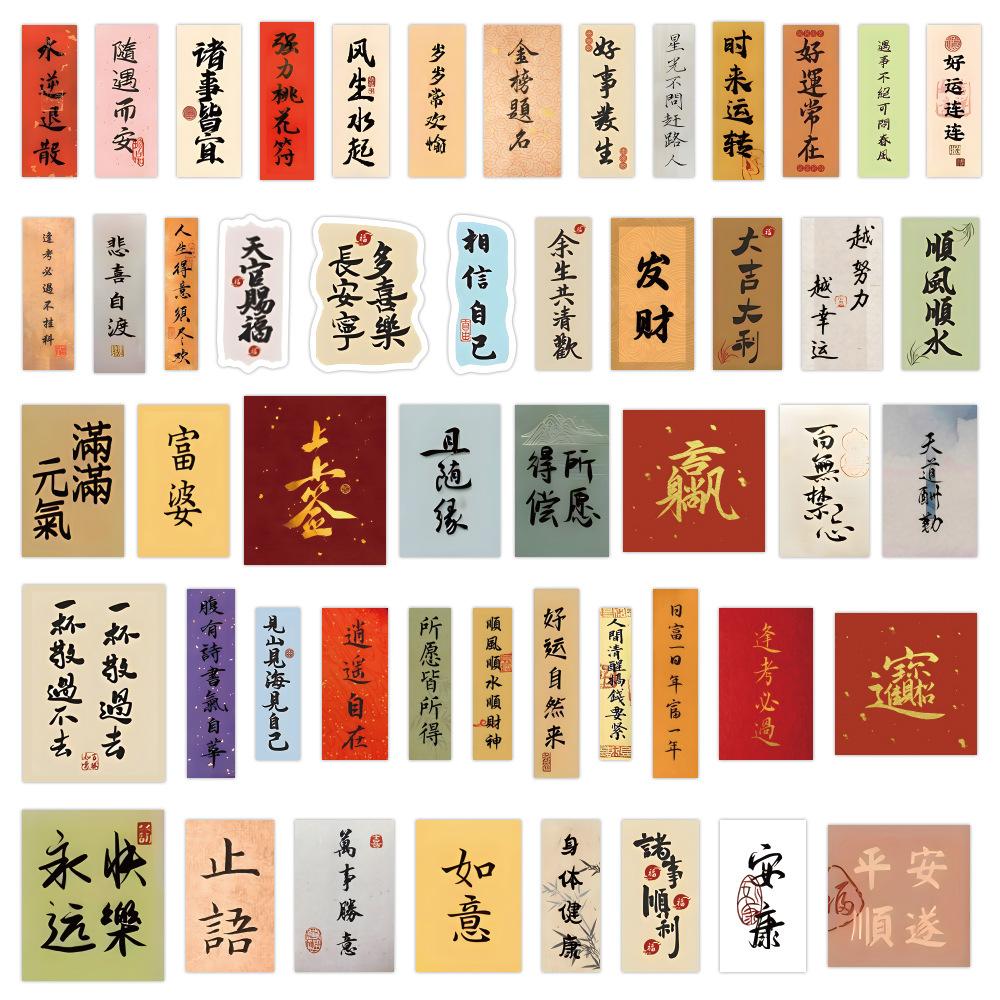 永逆退散
随遇而安
诸事皆宜
强力桃花符
风生水起
岁岁常欢愉
金榜題名
好事發生
星光不問赶路人
时来运转
好運常在
遇事不絕可問春風
好运连连
逢考必過不挂科
悲喜自渡
人生得意須尽欢
天官賜福
福
福
多喜樂
長安寧
福
相信自己
自由
余生共清歡
福
发财
大吉大利
福
越努力
越幸运
順風順水
滿滿
元氣
富婆
上上签
且随缘
所愿
得偿
赢
百無禁忌
天道酬勤
一杯敬過去
一杯敬過不去
腹有詩書氣自華
見山見海見自己
逍遥自在
所愿皆所得
順風順水順財神
好运自然来
人間清醒搞錢要緊
日富一日年富一年
逢考必過
招財進寶
快樂
永远
止語
萬事勝意
如意
身体健康
諸事順利
福
福
福
安康
安遂
平順
福